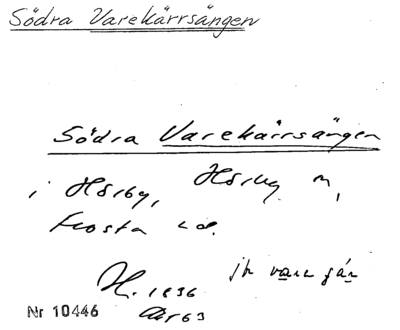 Södra Varekärrsängen
Södra Varekärrsängen
i Hörby, Hörby m,
Frosta hd.
jfr vare går
H. 1836
Nr 10446